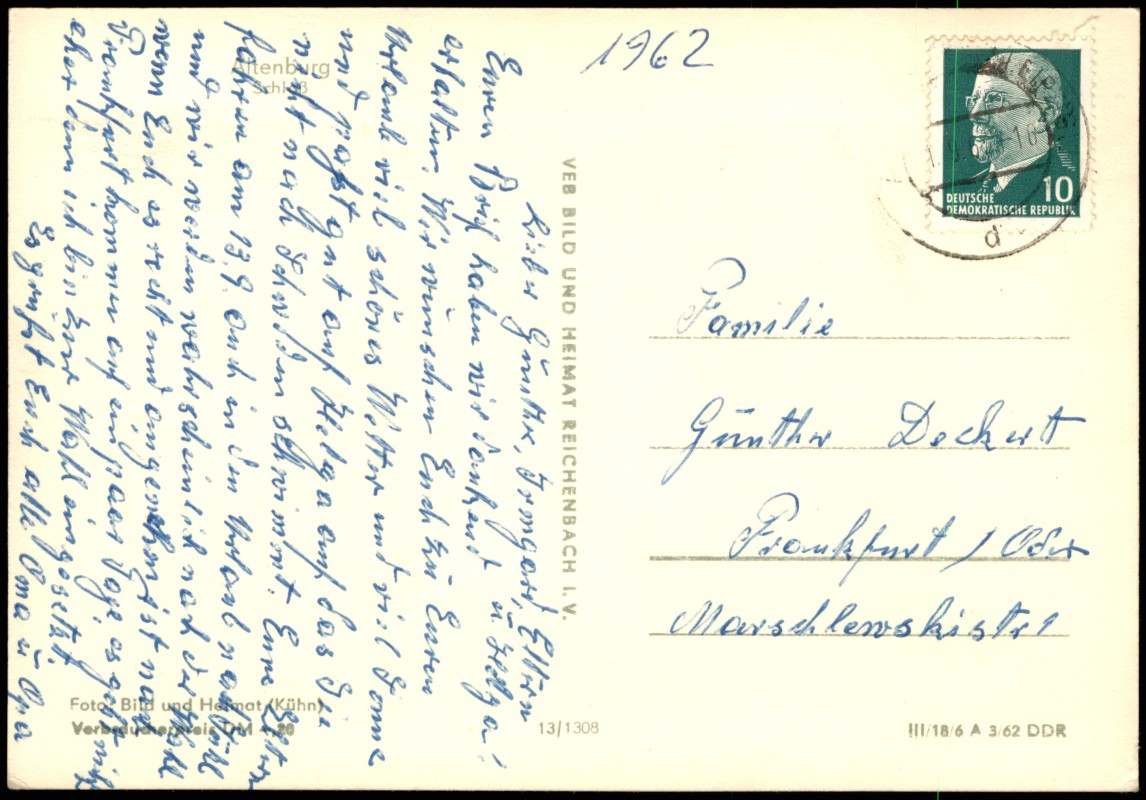 1962
Altenburg
Schloß
Lieber Günther, Irmgard, Eltern
u. Helga!
Euren Brief haben wir dankend
erhalten. Wir wünschen Euch zu Euren
Urlaub viel schönes Wetter und viel Sonne
und paßt gut auf Helga auf das Sie
nicht nach Schweden schwimmt. Eure Eltern
fahren am 13.9. auch in den Urlaub
und wir werden wahrscheinlich nach der Wahl
wenn Euch es recht und angenehm ist nach
Frankfurt kommen auf ein paar Tage, es geht nicht
eher denn ich bin zur Wahl eingesetzt.
Es grüßt Euch alle Oma u. Opa
VEB BILD UND HEIMAT REICHENBACH I. V.
DEUTSCHE
DEMOKRATISCHE REPUBLIK
10
d
Familie
Günther Deckert
Frankfurt / Oder
Marschlewskistr 1
Foto: Bild und Heimat (Kühn)
Verbraucherpreis DM
13/1308
III/18/6 A 3/62 DDR